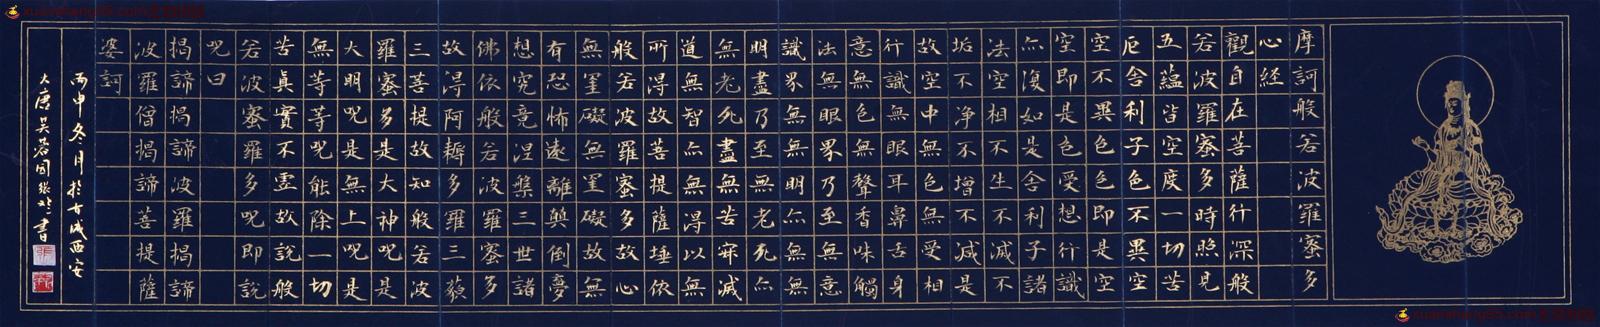 摩訶般若波羅蜜多
心經
觀自在菩薩行深般
若波羅蜜多時照見
五蘊皆空度一切苦
厄舍利子色不異空
空不異色色即是空
空即是色受想行識
亦復如是舍利子諸
法空相不生不滅不
垢不淨不增不減是
故空中無色無受相
行識無眼耳鼻舌身
意無色聲香味觸
法無眼界乃至無意
識界無無明亦無無
明盡乃至無老死亦
無老死盡無苦寂滅
道無智亦無得以無
所得故菩提薩埵依
般若波羅蜜多故心
無罣礙無罣礙故無
有恐怖遠離顛倒夢
想究竟涅槃三世諸
佛依般若波羅蜜多
故得阿耨多羅三藐
三菩提故知般若波
羅蜜多是大神呪是
大明呪是無上呪是
無等等呪能除一切
苦真實不虛故說般
若波蜜羅多呪即說
呪曰
揭諦揭諦波羅揭諦
波羅僧揭諦菩提薩
婆訶
丙申冬月於古城西安
大唐
書